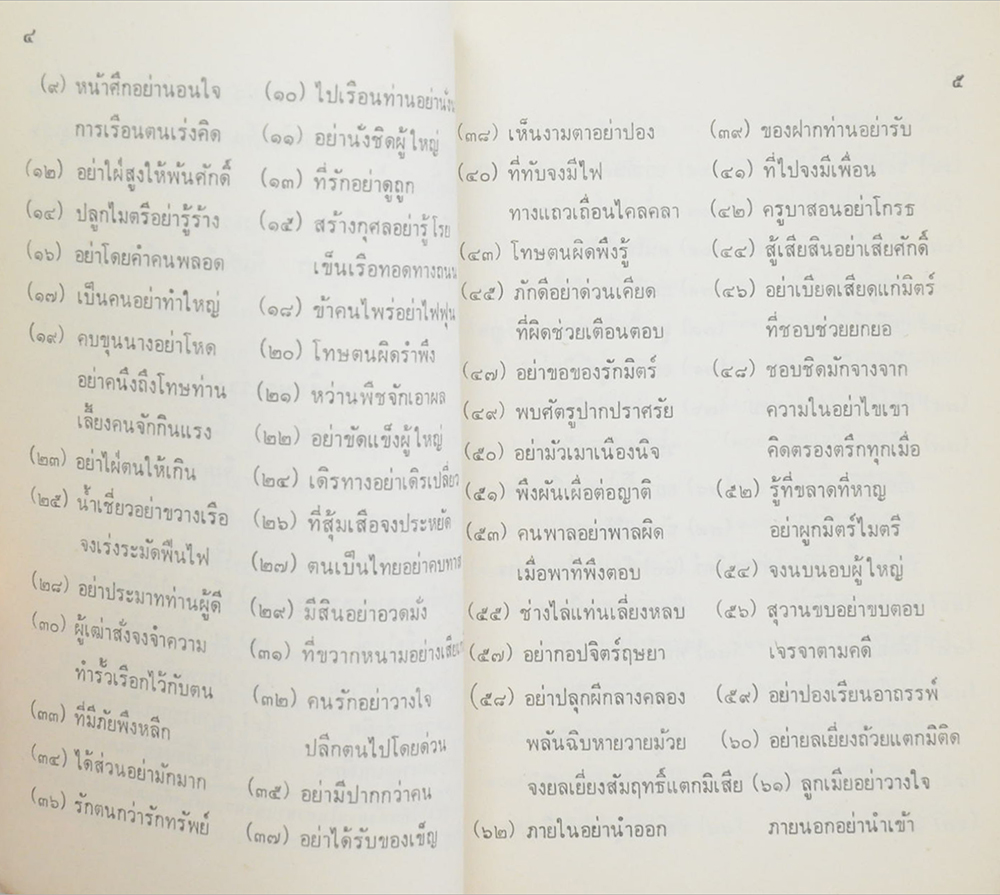 ๔
(๙) หน้าศึกอย่านอนใจ (๑๐) ไปเรือนท่านอย่านั่ง
การเรือนตนเร่งคิด (๑๑) อย่านั่งชิดผู้ใหญ่
(๑๒) อย่าใฝ่สูงให้พ้นศักดิ์ (๑๓) ที่รักอย่าดูถูก
(๑๔) ปลูกไมตรีอย่ารู้ร้าง (๑๕) สร้างกุศลอย่ารู้โรย
(๑๖) อย่าโดยคำคนพลอด เข็นเรือทอดทางถนน
(๑๗) เป็นคนอย่าทำใหญ่ (๑๘) ข้าคนไพร่อย่าไฟฟุน
(๑๙) คบขุนนางอย่าโหด (๒๐) โทษตนผิดรำพึง
อย่าคนึงถึงโทษท่าน (๒๑) หว่านพืชจักเอาผล
เลี้ยงคนจักกินแรง (๒๒) อย่าขัดแข็งผู้ใหญ่
(๒๓) อย่าไฝ่ตนให้เกิน (๒๔) เดิรทางอย่าเดิรเปลี่ยว
(๒๕) น้ำเชี่ยวอย่าขวางเรือ (๒๖) ที่สุ้มเสือจงประหยัด
จงเร่งระมัดฟืนไฟ (๒๗) ตนเป็นไทยอย่าคบทาส
(๒๘) อย่าประมาทท่านผู้ดี (๒๙) มีสินอย่าอวดมั่ง
(๓๐) ผู้เฒ่าสั่งจงจำความ (๓๑) ที่ขวากหนามอย่างเสีย
ทำรั้วเรือกไว้กับตน (๓๒) คนรักอย่าวางใจ
(๓๓) ที่มีภัยพึงหลีก ปลีกตนไปโดยด่วน
(๓๔) ได้ส่วนอย่ามักมาก (๓๕) อย่ามีปากกว่าคน
(๓๖) รักตนกว่ารักทรัพย์ (๓๗) อย่าได้รับของเข็ญ
๕
(๓๘) เห็นงามตาอย่าปอง (๓๙) ของฝากท่านอย่ารับ
(๔๐) ที่ทับจงมีไฟ (๔๑) ที่ไปจงมีเพื่อน
ทางแถวเถื่อนไคลคลา (๔๒) ครูบาสอนอย่าโกรธ
(๔๓) โทษตนผิดพึงรู้ (๔๔) สู้เสียสินอย่าเสียศักดิ์
(๔๕) ภักดีอย่าด่วนเคียด (๔๖) อย่าเบียดเสียดแก่มิตร์
ที่ผิดช่วยเตือนตอบ ที่ชอบช่วยยกยอ
(๔๗) อย่าขอของรักมิตร์ (๔๘) ชอบชิดมักจางจาก
(๔๙) พบศัตรูปากปราศรัย ความในอย่าไขเขา
(๕๐) อย่ามัวเมาเนืองนิจ คิดตรองตรึกทุกเมื่อ
(๕๑) พึงผันเผื่อต่อญาติ (๕๒) รู้ที่ขลาดที่หาญ
(๕๓) คนพาลอย่าพาลผิด อย่าผูกมิตร์ไมตรี
เมื่อพาทีพึงตอบ (๕๔) จงนบนอบผู้ใหญ่
(๕๕) ช่างไล่แท่นเลี่ยงหลบ (๕๖) สุวานขบอย่าขบตอบ
(๕๗) อย่ากอปจิตร์ฤษยา เจรจาตามคดี
(๕๘) อย่าปลุกผีกลางคลอง (๕๙) อย่าปองเรียนอาถรรพ์
พลันฉิบหายวายม้วย (๖๐) อย่ายลเยี่ยงถ้วยแตกมิติด
จงยลเยี่ยงสัมฤทธิ์แตกมิเสีย (๖๑) ลูกเมียอย่าวางใจ
(๖๒) ภายในอย่านำออก ภายนอกอย่านำเข้า